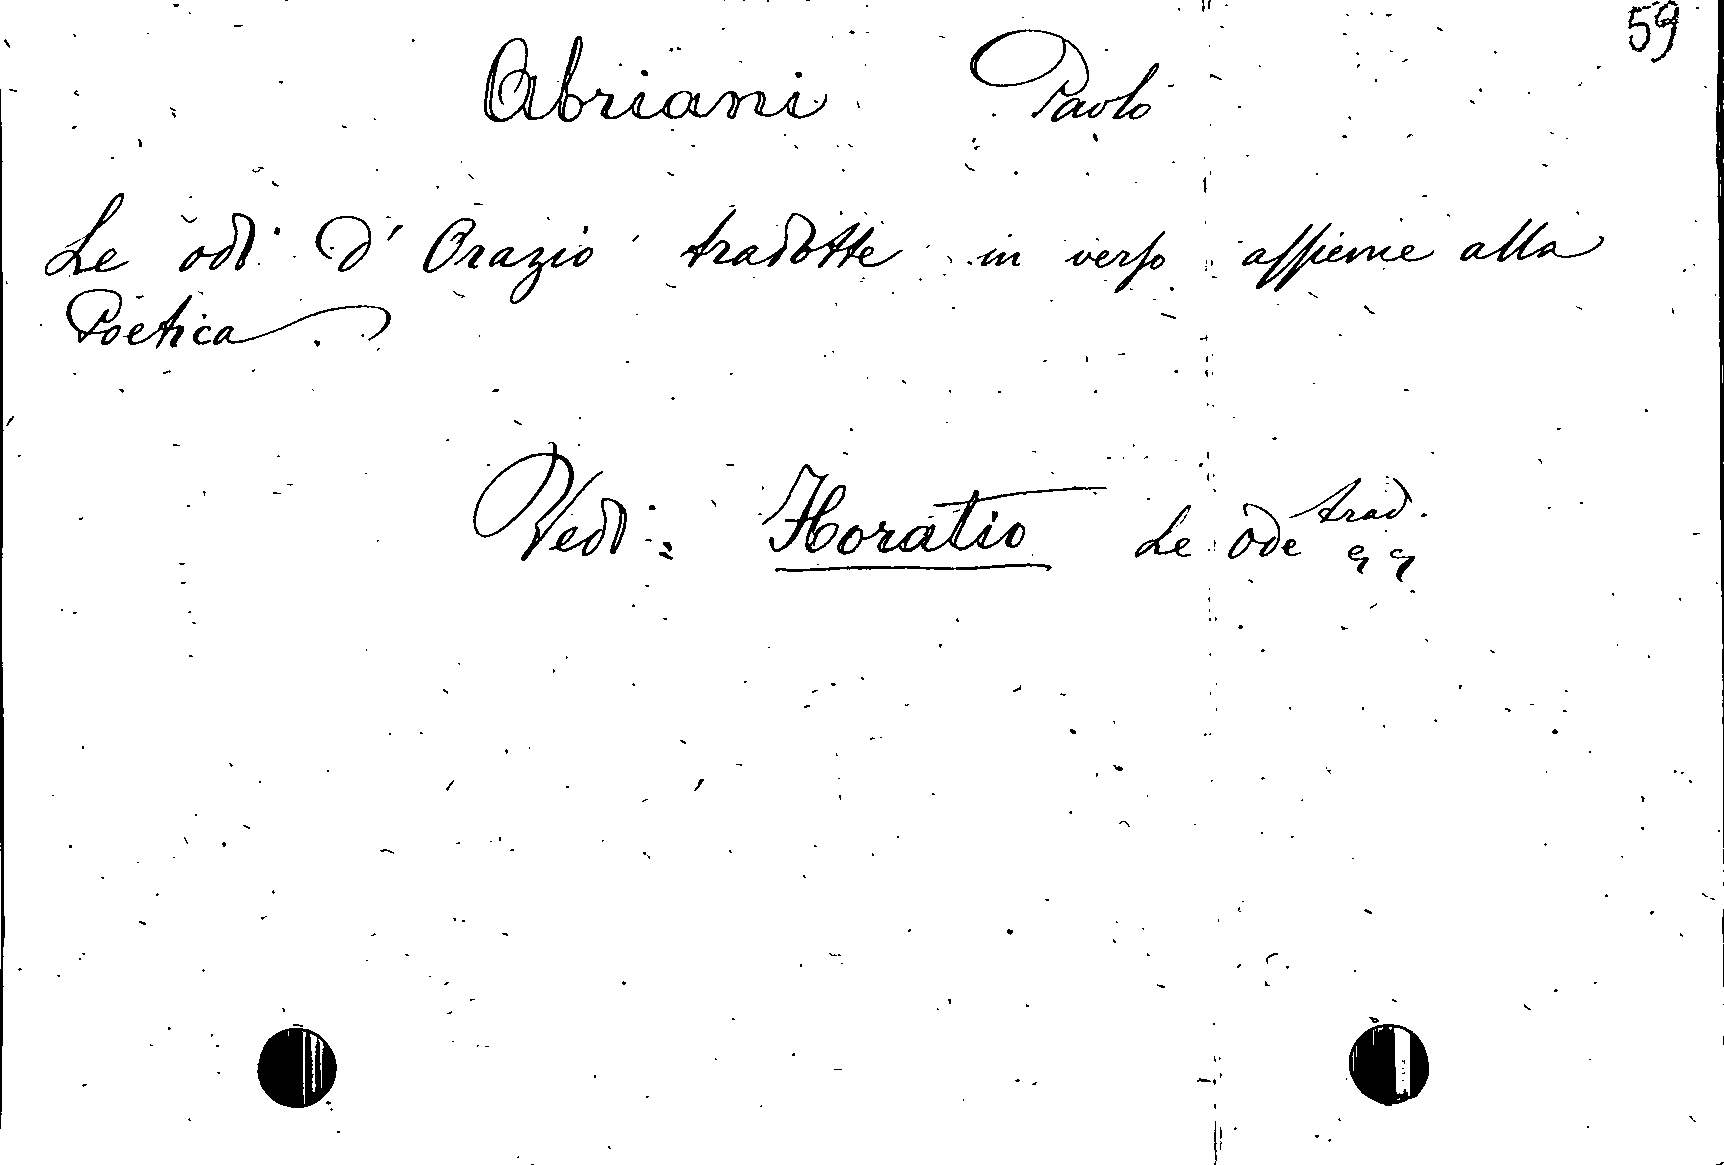 59
Abriani Paolo
Le odi d' Orazio tradotte in verso assieme alla
Poetica.
Vedi: Horatio Le Ode trad.